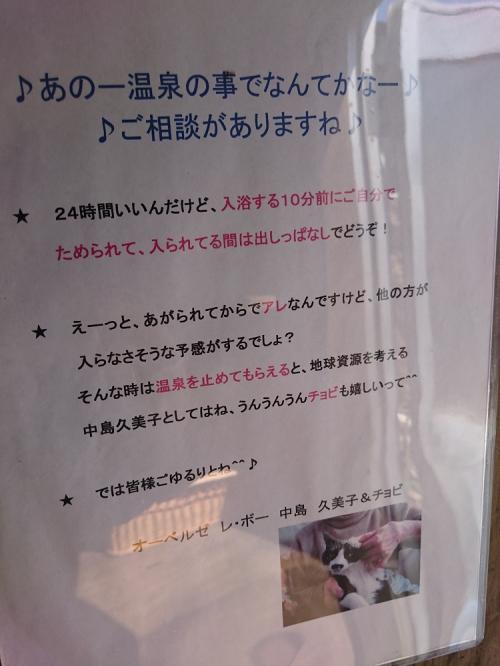 ♪あの一温泉の事でなんてかなー♪
♪ご相談がありますね♪
★ 24時間いいんだけど、入浴する10分前にご自分で
ためられて、入られてる間は出しっぱなしでどうぞ！
★ えーっと、あがられてからでアレなんですけど、他の方が
入らなさそうな予感がするでしょ？
そんな時は温泉を止めてもらえると、地球資源を考える
中島久美子としてはね、うんうんうんチョビも嬉しいって^^
★ では皆様ごゆるりとね^^♪
オーベルゼ レ・ボー 中島 久美子＆チョビ